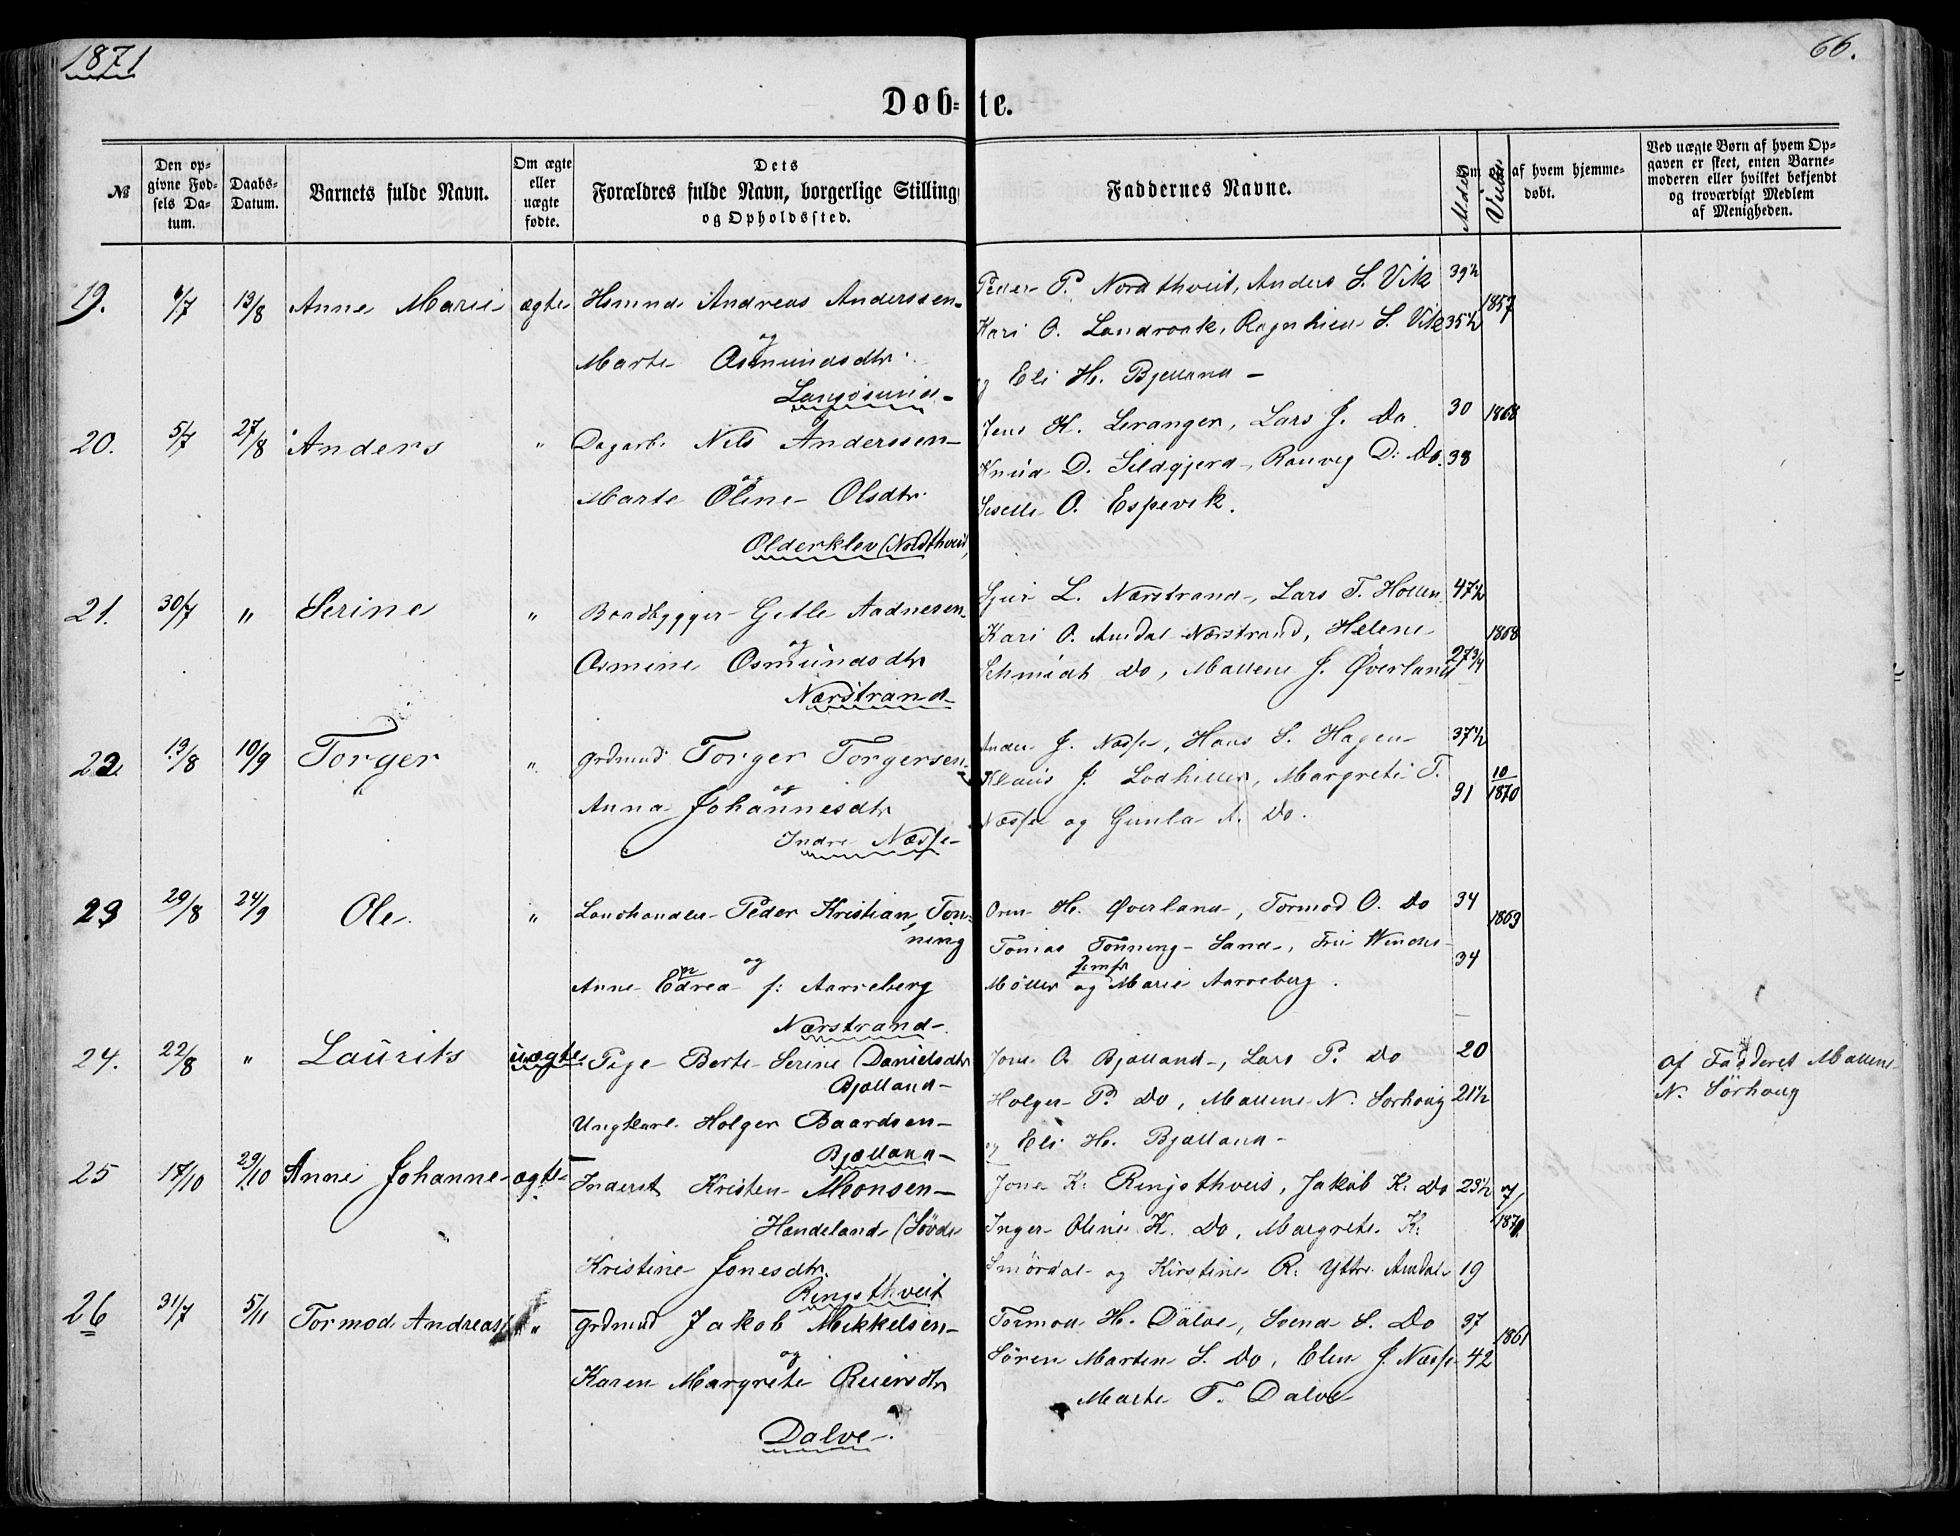 1871
66.
Døb-te.
№
Den op-
givne Fød-
sels Da-
tum.
Daabs-
Datum.
Barnets fulde Navn.
Om ægte
eller
uægte
fødte.
Dets
Forældres fulde Navn, borgerlige Stilling
og Opholdssted.
Faddernes Navne.
Moder
Viede
Om af hvem hjemme-
døbt.
Ved uægte Børn af hvem Op-
gaven er skeet, enten Barne-
moderen eller hvilket bekjendt
og troværdigt Medlem
af Menigheden.
19. 6/7 13/8 Anne Marie ægte Hsmnd Andreas Anderssen
og
Marte Osmundsdtr.
Langøsund
Peder P. Nordthveit, Anders S. Vik 39½
Kari O. Landraak, Ragnhild S. Vik 35½ 1857
og Eli H. Bjelland
20. 5/7 27/8 Anders " Dagarb. Nils Anderssen
og
Marte Oline Olsdtr.
Olderklev (Nordthveit)
Jens H. Leranger, Lars J. Do 30 1868
Knud D. Sildgjerd, Ranveg D. Do. 38
Siselle O. Espevik.
21. 30/7 " Serine " Baadbygger Getle Aadnesen
og
Osmine Osmundsdtr
Nærstrand
Sjur L. Nærstrand, Lars T. Hollen 47½
Kari O. Amdal Nærstrand, Helene 1868
Schmidt Do, Mallene J. Øverland 27¾
22. 13/8 10/9 Torger " Grdmnd Torger Torgersen
og
Anna Johannesdtr
Indre Næsse
Anders J. Næsse, Hans S. Hagen 37½
Klaus J. Lodhiller, Margrete T. 10/1870
Næsse og Gunla A. Do. 31
23 29/8 24/9 Ole " Landhandler Peder Kristian Ton-
ning
og
Anne Edrea f: Aarreberg
Nærstrand
Orm H. Øverland, Tormod O. Do 34
Tomas Tonning Sand, Fru 1863
Møller og Jomfr Marie Aarreberg. 34
24. 22/8 " Laurits uægte Pige Berte Serine Danielsdtr
Bjælland
Ungkarl Holger Baardsen
Bjælland
Jone O. Bjælland, Lars P. Do 20
Holger P. Do, Mallene N. Sørhoug 21½
og Eli H. Bjælland
Af Fadderet Mallene
N. Sørhoug
25 17/10 29/10 Anne Johanne ægte Inderst Kristen Monsen
Handeland (Søvde
Kristine Jonesdtr.
Ringsthveit
Jone K. Ringsthveit, Jakob K. Do 23½
Inger Oline K. Do, Margrete K.
Smørdal og Kirstine R. Yttre Amdal 19
26 31/7 5/11 Tormod Andreas " Grdmnd Jakob Mikkelsen
og
Karen Margrete Reiersdtr
Dalve
Tormod H. Dalve, Svend S. Do 37
Søren Marten S. Do, Elen J. Næsse 42 1861
Marte T. Dalve